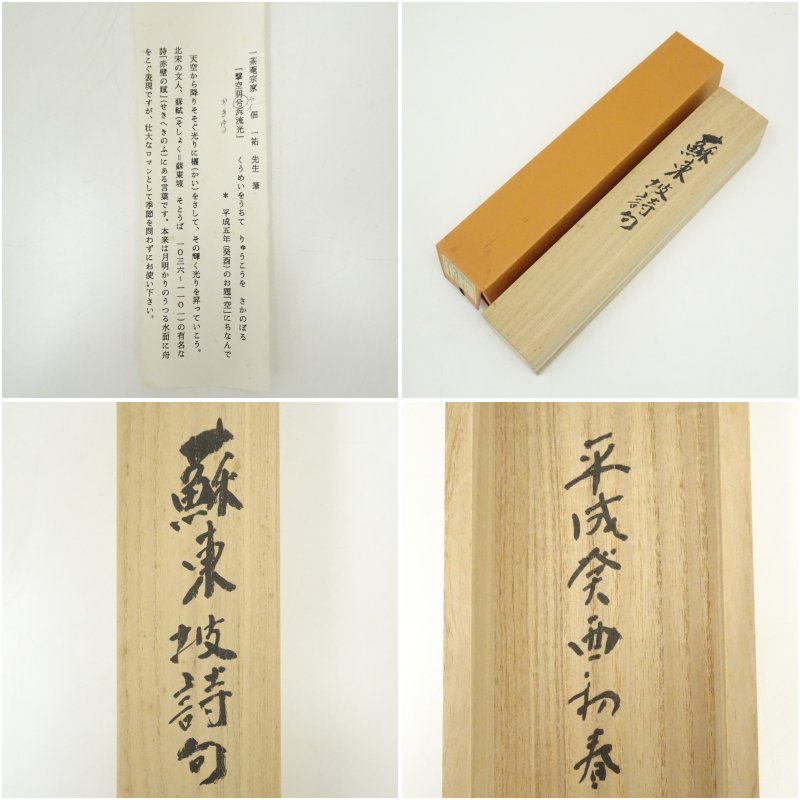 一茶菴宗家 佃 一祐 先生 筆
「撃空明兮泝流光」 くうめいをうちて りゅうこうを さかのぼる
＊ 平成五年(癸酉)のお題「空」にちなんで
天空から降りそそぐ光りに櫂(かい)をさして、その輝く光りを昇っていこう。
北宋の文人、蘇軾(そしょく=蘇東坡 そとうば 一〇三六〜一一〇一)の有名な
詩「赤壁の賦」(せきへきのふ)にある言葉です。本来は月明かりのうつる水面に舟
をこぐ表現ですが、壮大なロマンとして季節を問わずにお使い下さい。
蘇東坡詩句
蘇東坡詩句
平成癸酉初春